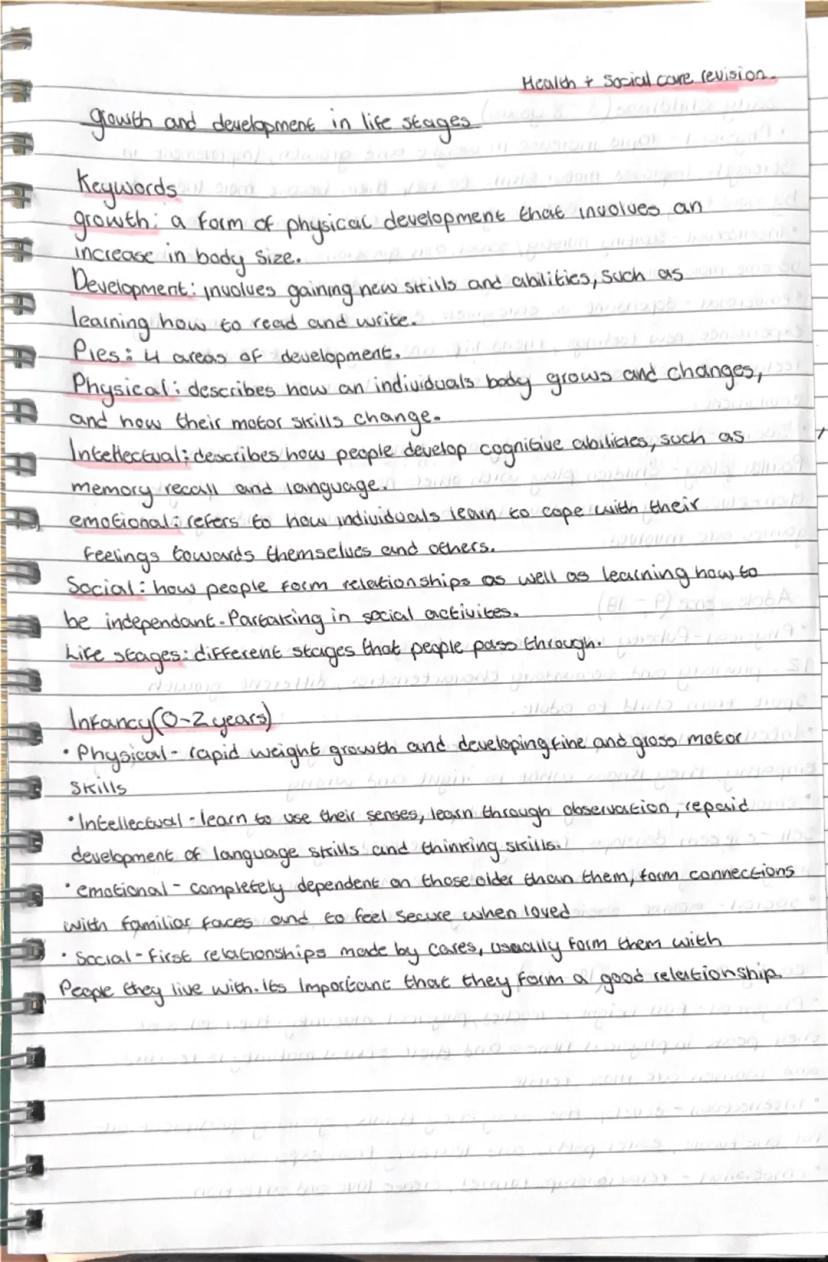 Health + Social care revision.
growth and development in life stages
Keywords
growth: a form of physical development that involves an
increase in body size.
Development: involves gaining new skills and abilities, such as
learning how to read and write.
Pies: 4 areas of development.
Physical: describes how an individuals body grows and changes,
and how their motor skills change.
Intellectual: describes how people develop cognitive abilities, such as
memory recall and language.
emotional: refers to how individuals learn to cope with their
feelings towards themselves and others.
Social: how people form relationships as well as learning how to
be independant. Partaking in social activites.
Life stages: different stages that people pass through.
Infancy (0-2 years)
• Physical - rapid weight growth and developing fine and gross motor
skills
• Intellectual - learn to use their senses, learn through observation, repaid
development of language skills and thinking skills.
• emotional - completely dependent on those older than them, form connections
with familiar faces and to feel secure when loved
• Social - First relationships made by cares, usually form them with
People they live with. Its important that they form a good relationship.